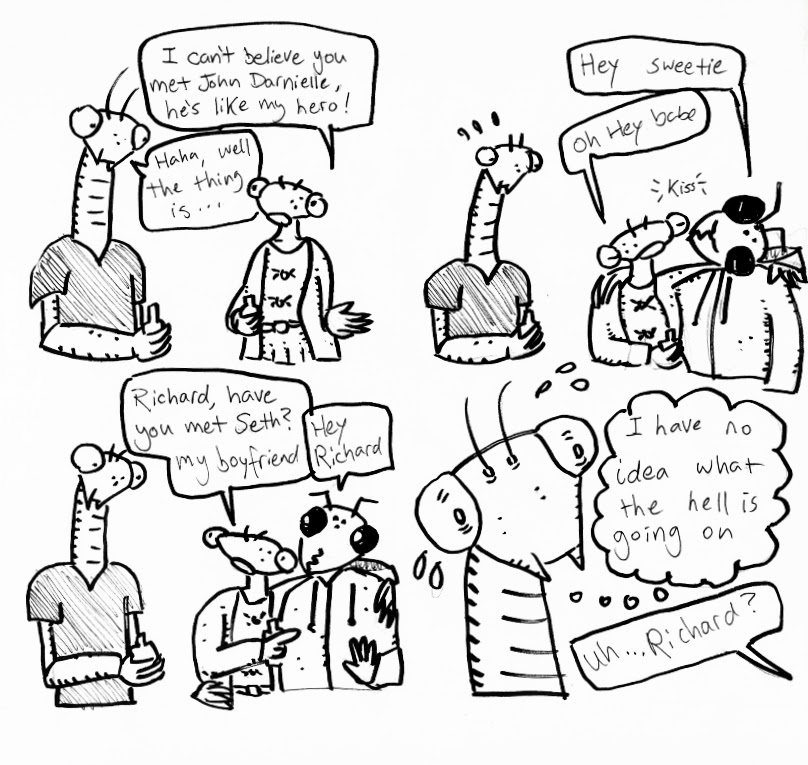 I can't believe you
met John Darnielle,
he's like my hero!
Haha, well
the thing
is...
Hey sweetie
Oh Hey babe
Kiss
Richard, have
you met Seth?
my boyfriend
Hey
Richard
I have no
idea what
the hell is
going on
uh...Richard?